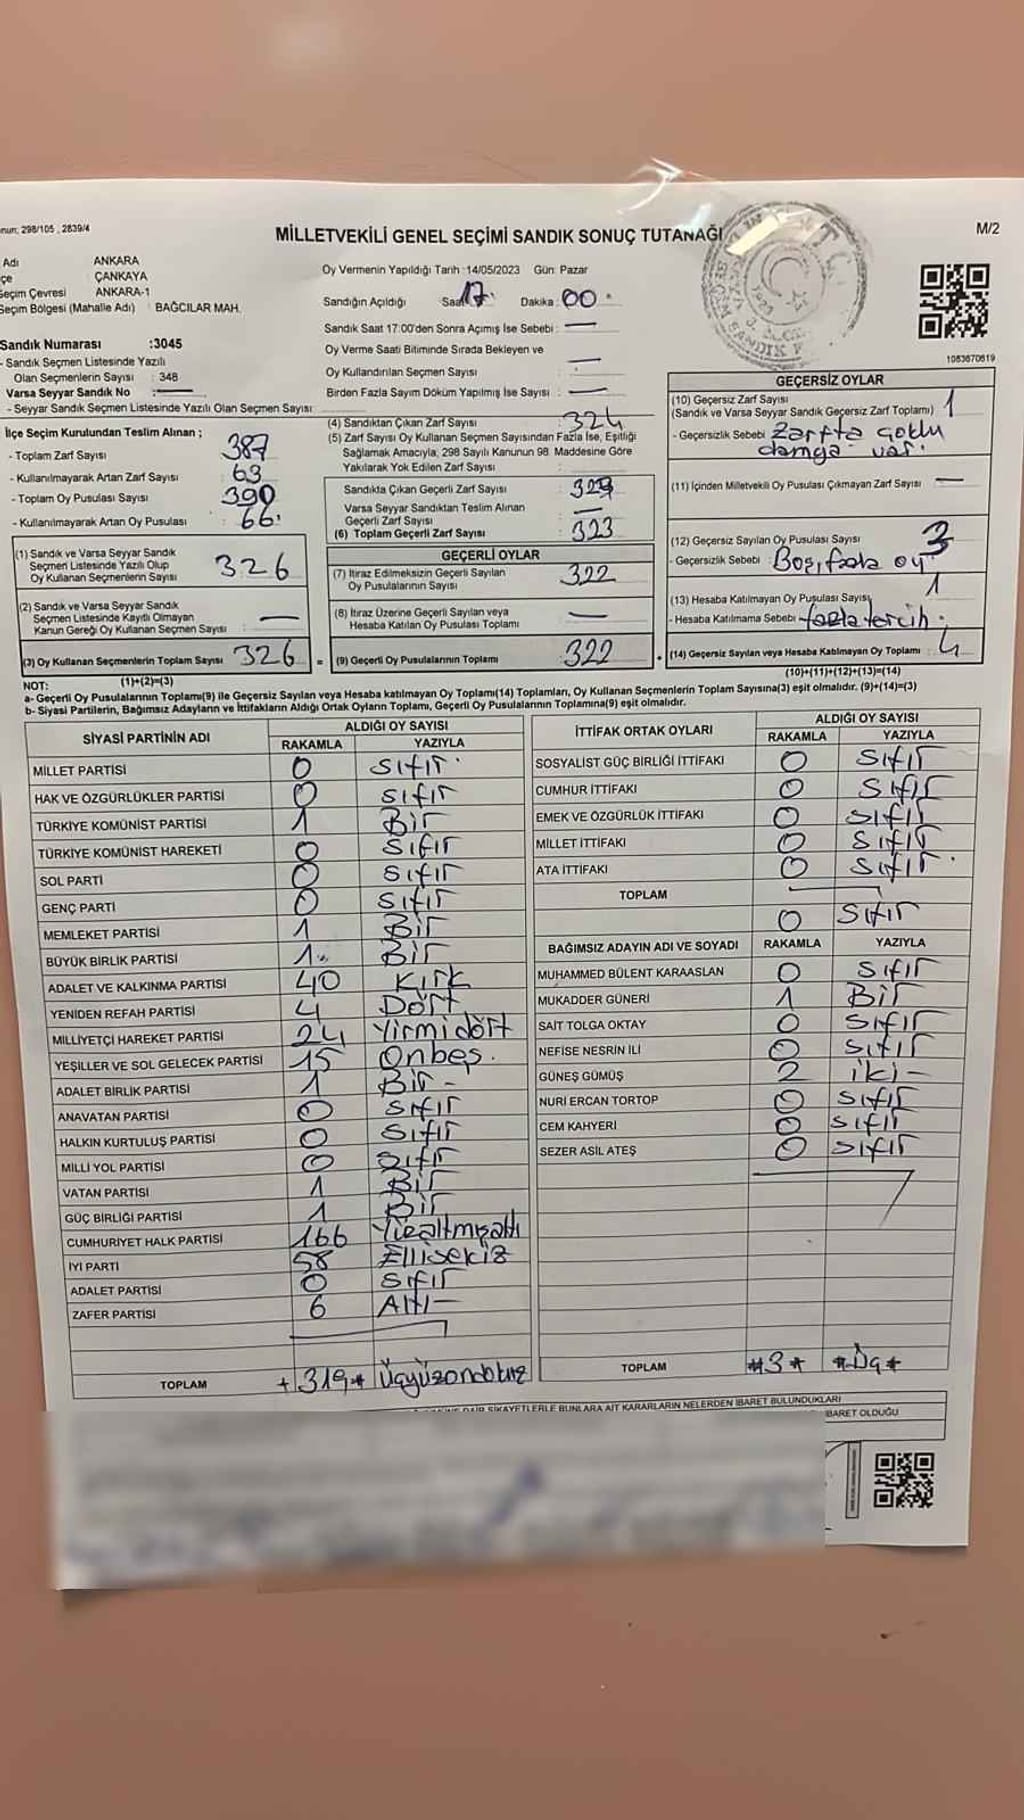 298/105 , 2839/4
MİLLETVEKİLİ GENEL SEÇİMİ SANDIK SONUÇ TUTANAĞI
M/2
Adı ANKARA
çe ÇANKAYA
Seçim Çevresi ANKARA-1
Seçim Bölgesi (Mahalle Adı) : BAĞCILAR MAH.
Oy Vermenin Yapıldığı Tarih :14/05/2023 Gün: Pazar
Sandığın Açıldığı Saat 17 Dakika : 00
Sandık Saat 17:00'den Sonra Açımış İse Sebebi : —
Oy Verme Saati Bitiminde Sırada Bekleyen ve
Oy Kullandırılan Seçmen Sayısı : —
Birden Fazla Sayım Döküm Yapılmış İse Sayısı : —
Sandık Numarası :3045
- Sandık Seçmen Listesinde Yazılı
Olan Seçmenlerin Sayısı : 348
Varsa Seyyar Sandık No : —
- Seyyar Sandık Seçmen Listesinde Yazılı Olan Seçmen Sayısı:
İlçe Seçim Kurulundan Teslim Alınan ;
- Toplam Zarf Sayısı : 387
- Kullanılmayarak Artan Zarf Sayısı : 63
- Toplam Oy Pusulası Sayısı : 390
- Kullanılmayarak Artan Oy Pusulası : 66
(1) Sandık ve Varsa Seyyar Sandık
Seçmen Listesinde Yazılı Olup
Oy Kullanan Seçmenlerin Sayısı : 326
(2) Sandık ve Varsa Seyyar Sandık
Seçmen Listesinde Kayıtlı Olmayan
Kanun Gereği Oy Kullanan Seçmen Sayısı : —
(3) Oy Kullanan Seçmenlerin Toplam Sayısı : 326 =
(1)+(2)=(3)
(4) Sandıktan Çıkan Zarf Sayısı : 324
(5) Zarf Sayısı Oy Kullanan Seçmen Sayısından Fazla İse, Eşitliği
Sağlamak Amacıyla, 298 Sayılı Kanunun 98. Maddesine Göre
Yakılarak Yok Edilen Zarf Sayısı :
Sandıkta Çıkan Geçerli Zarf Sayısı : 323
Varsa Seyyar Sandıktan Teslim Alınan
Geçerli Zarf Sayısı : —
(6) Toplam Geçerli Zarf Sayısı : 323
GEÇERLİ OYLAR
(7) İtiraz Edilmeksizin Geçerli Sayılan
Oy Pusulalarının Sayısı : 322
(8) İtiraz Üzerine Geçerli Sayılan veya
Hesaba Katılan Oy Pusulası Toplamı : —
(9) Geçerli Oy Pusulalarının Toplamı : 322 +
1083670619
GEÇERSİZ OYLAR
(10) Geçersiz Zarf Sayısı
(Sandık ve Varsa Seyyar Sandık Geçersiz Zarf Toplamı) : 1
- Geçersizlik Sebebi : Zarfta çoklu
damga var.
(11) İçinden Milletvekili Oy Pusulası Çıkmayan Zarf Sayısı : —
(12) Geçersiz Sayılan Oy Pusulası Sayısı : 3
- Geçersizlik Sebebi : Boş, fazla oy
(13) Hesaba Katılmayan Oy Pusulası Sayısı : 1
- Hesaba Katılmama Sebebi : fazla tercih.
(14) Geçersiz Sayılan veya Hesaba Katılmayan Oy Toplamı : 4
(10)+(11)+(12)+(13)=(14)
NOT:
a- Geçerli Oy Pusulalarının Toplamı(9) ile Geçersiz Sayılan veya Hesaba katılmayan Oy Toplamı(14) Toplamları, Oy Kullanan Seçmenlerin Toplam Sayısına(3) eşit olmalıdır. (9)+(14)=(3)
b- Siyasi Partilerin, Bağımsız Adayların ve İttifakların Aldığı Ortak Oyların Toplamı, Geçerli Oy Pusulalarının Toplamına(9) eşit olmalıdır.
SİYASİ PARTİNİN ADI ALDIĞI OY SAYISI
RAKAMLA YAZIYLA
MİLLET PARTİSİ 0 sıfır
HAK VE ÖZGÜRLÜKLER PARTİSİ 0 sıfır
TÜRKİYE KOMÜNİST PARTİSİ 1 Bir
TÜRKİYE KOMÜNİST HAREKETİ 0 sıfır
SOL PARTİ 0 sıfır
GENÇ PARTİ 0 sıfır
MEMLEKET PARTİSİ 1 Bir
BÜYÜK BİRLİK PARTİSİ 1 Bir
ADALET VE KALKINMA PARTİSİ 40 Kırk
YENİDEN REFAH PARTİSİ 4 Dört
MİLLİYETÇİ HAREKET PARTİSİ 24 Yirmidört
YEŞİLLER VE SOL GELECEK PARTİSİ 15 Onbeş.
ADALET BİRLİK PARTİSİ 1 Bir -
ANAVATAN PARTİSİ 0 sıfır
HALKIN KURTULUŞ PARTİSİ 0 sıfır
MİLLİ YOL PARTİSİ 0 sıfır
VATAN PARTİSİ 1 Bir
GÜÇ BİRLİĞİ PARTİSİ 1 Bir
CUMHURİYET HALK PARTİSİ 166 Yüzaltmışaltı
İYİ PARTİ 58 Ellisekiz
ADALET PARTİSİ 0 sıfır
ZAFER PARTİSİ 6 Altı -
TOPLAM 319 Üçyüzondokuz
İTTİFAK ORTAK OYLARI ALDIĞI OY SAYISI
RAKAMLA YAZIYLA
SOSYALİST GÜÇ BİRLİĞİ İTTİFAKI 0 sıfır
CUMHUR İTTİFAKI 0 sıfır
EMEK VE ÖZGÜRLÜK İTTİFAKI 0 sıfır
MİLLET İTTİFAKI 0 sıfır
ATA İTTİFAKI 0 sıfır
TOPLAM 0 sıfır
BAĞIMSIZ ADAYIN ADI VE SOYADI RAKAMLA YAZIYLA
MUHAMMED BÜLENT KARAASLAN 0 sıfır
MUKADDER GÜNERİ 1 Bir
SAİT TOLGA OKTAY 0 sıfır
NEFİSE NESRİN İLİ 0 sıfır
GÜNEŞ GÜMÜŞ 2 iki -
NURİ ERCAN TORTOP 0 sıfır
CEM KAHYERİ 0 sıfır
SEZER ASİL ATEŞ 0 sıfır
TOPLAM *3* *Üç*
ŞİKAYETLERLE BUNLARA AİT KARARLARIN NELERDEN İBARET BULUNDUKLARI
İBARET OLDUĞU